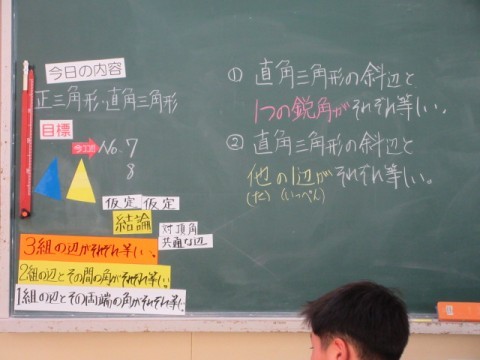 今日の内容
正三角形・直角三角形
目標
今ココ No.7
8
仮定 仮定
結論
対頂角
共通な辺
3組の辺がそれぞれ等しい。
2組の辺とその間の角がそれぞれ等しい
1組の辺とその両端の角がそれぞれ等しい
① 直角三角形の斜辺と
1つの鋭角がそれぞれ等しい。
② 直角三角形の斜辺と
他の1辺がそれぞれ等しい。
(た) (いっぺん)